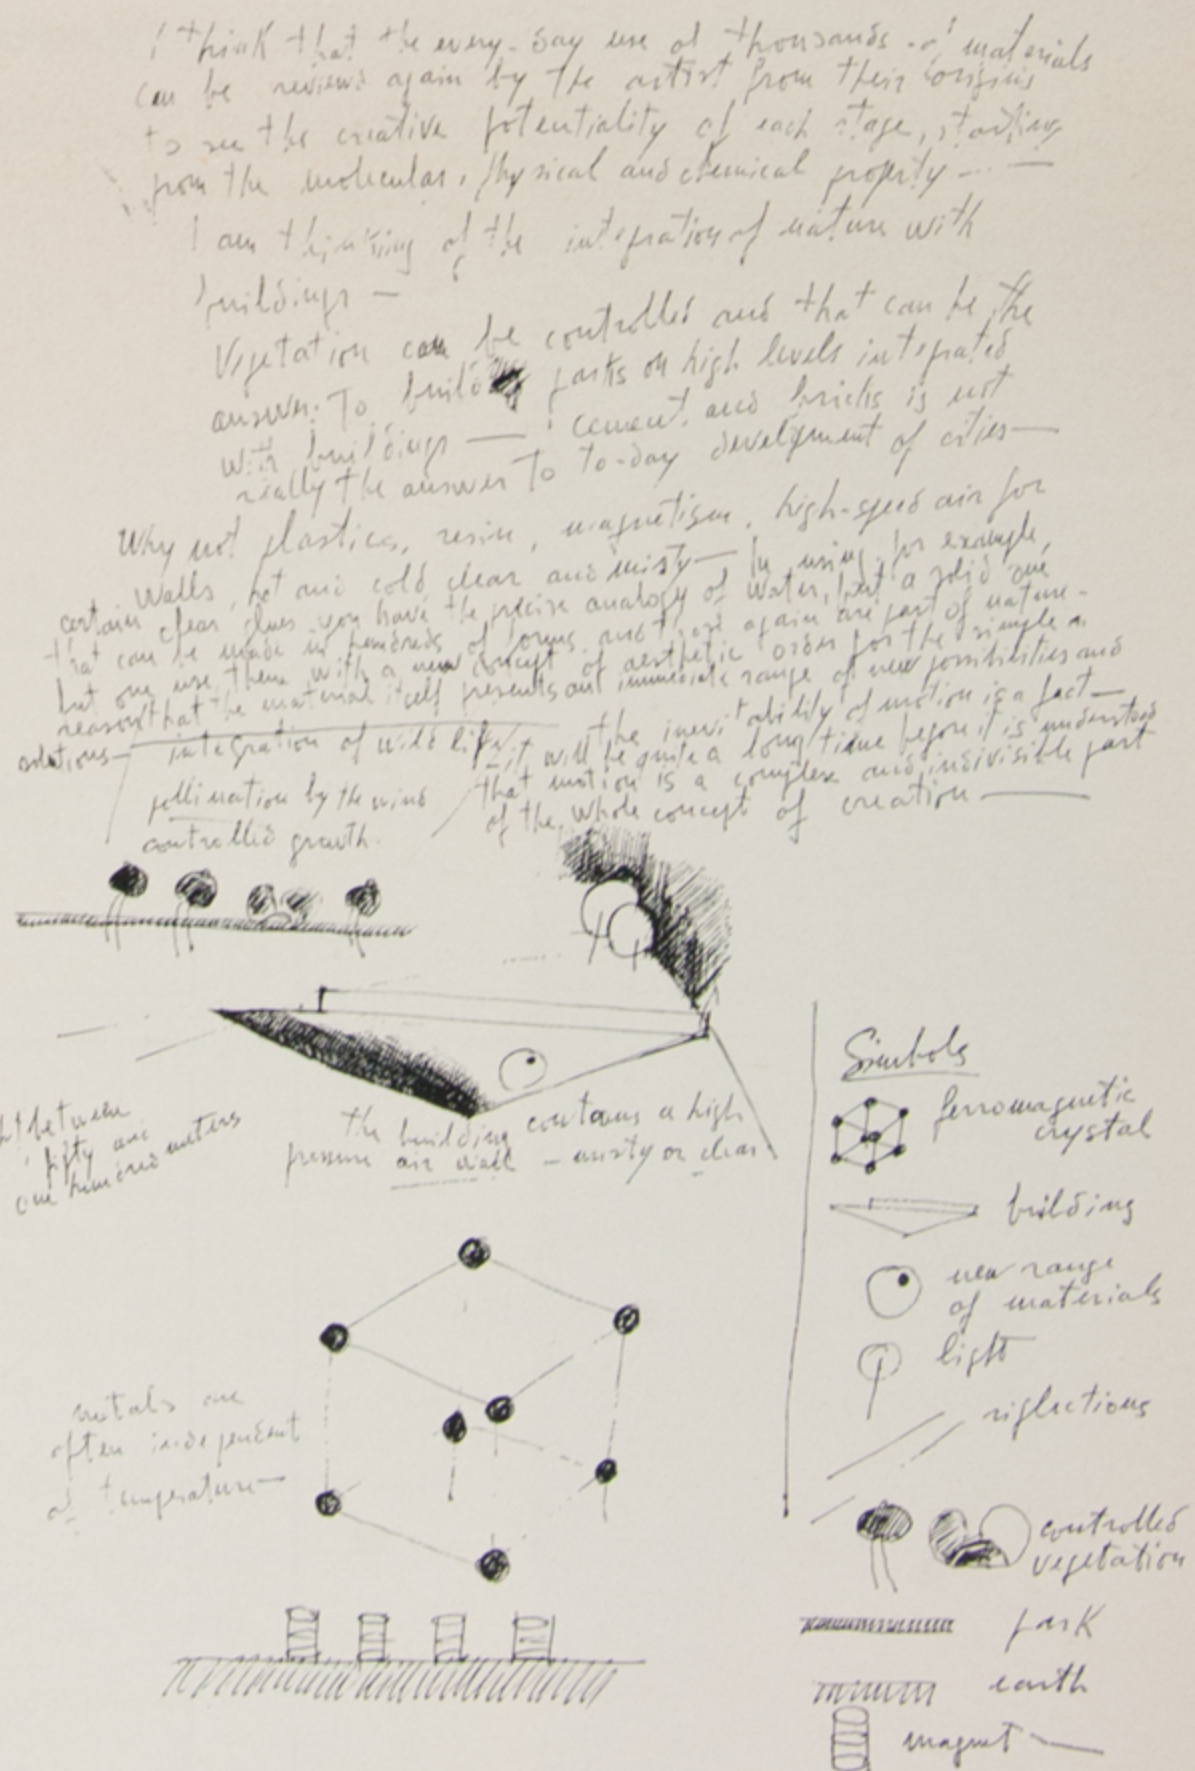 I think that the every-day use of thousands of materials
can be reviewed again by the artist from their origins
to see the creative potentiality of each stage, starting
from the molecular, physical and chemical property ---
I am thinking of the integration of nature with
buildings —
Vegetation can be controlled and that can be the
answer. To build parks on high levels integrated
with buildings — cement and bricks is not
really the answer to to-day development of cities —
Why not plastics, resin, magnetism, high-speed air for
walls, hot and cold clear and misty — In using, for example,
certain clear glues you have the precise analogy of water, but a solid one
that can be made in hundreds of forms and
again are part of nature -
but one use them with a new concept of aesthetic order for the simple
reason that the material itself presents an immediate range of new possibilities and
solutions —
integration of wild life
pollination by the wind
controlled growth.
the inevitability of motion is a fact —
it will be quite a long time before it is understood
that motion is a complex and indivisible part
of the whole concept of creation —
between
fifty and
one hundred meters
the building contains a high
pressure air wall — misty or clear
metals are
often independent
of temperature —
Simbols
ferromagnetic
crystal
building
new range
of materials
light
riflections
controlled
vegetation
park
earth
magnet —